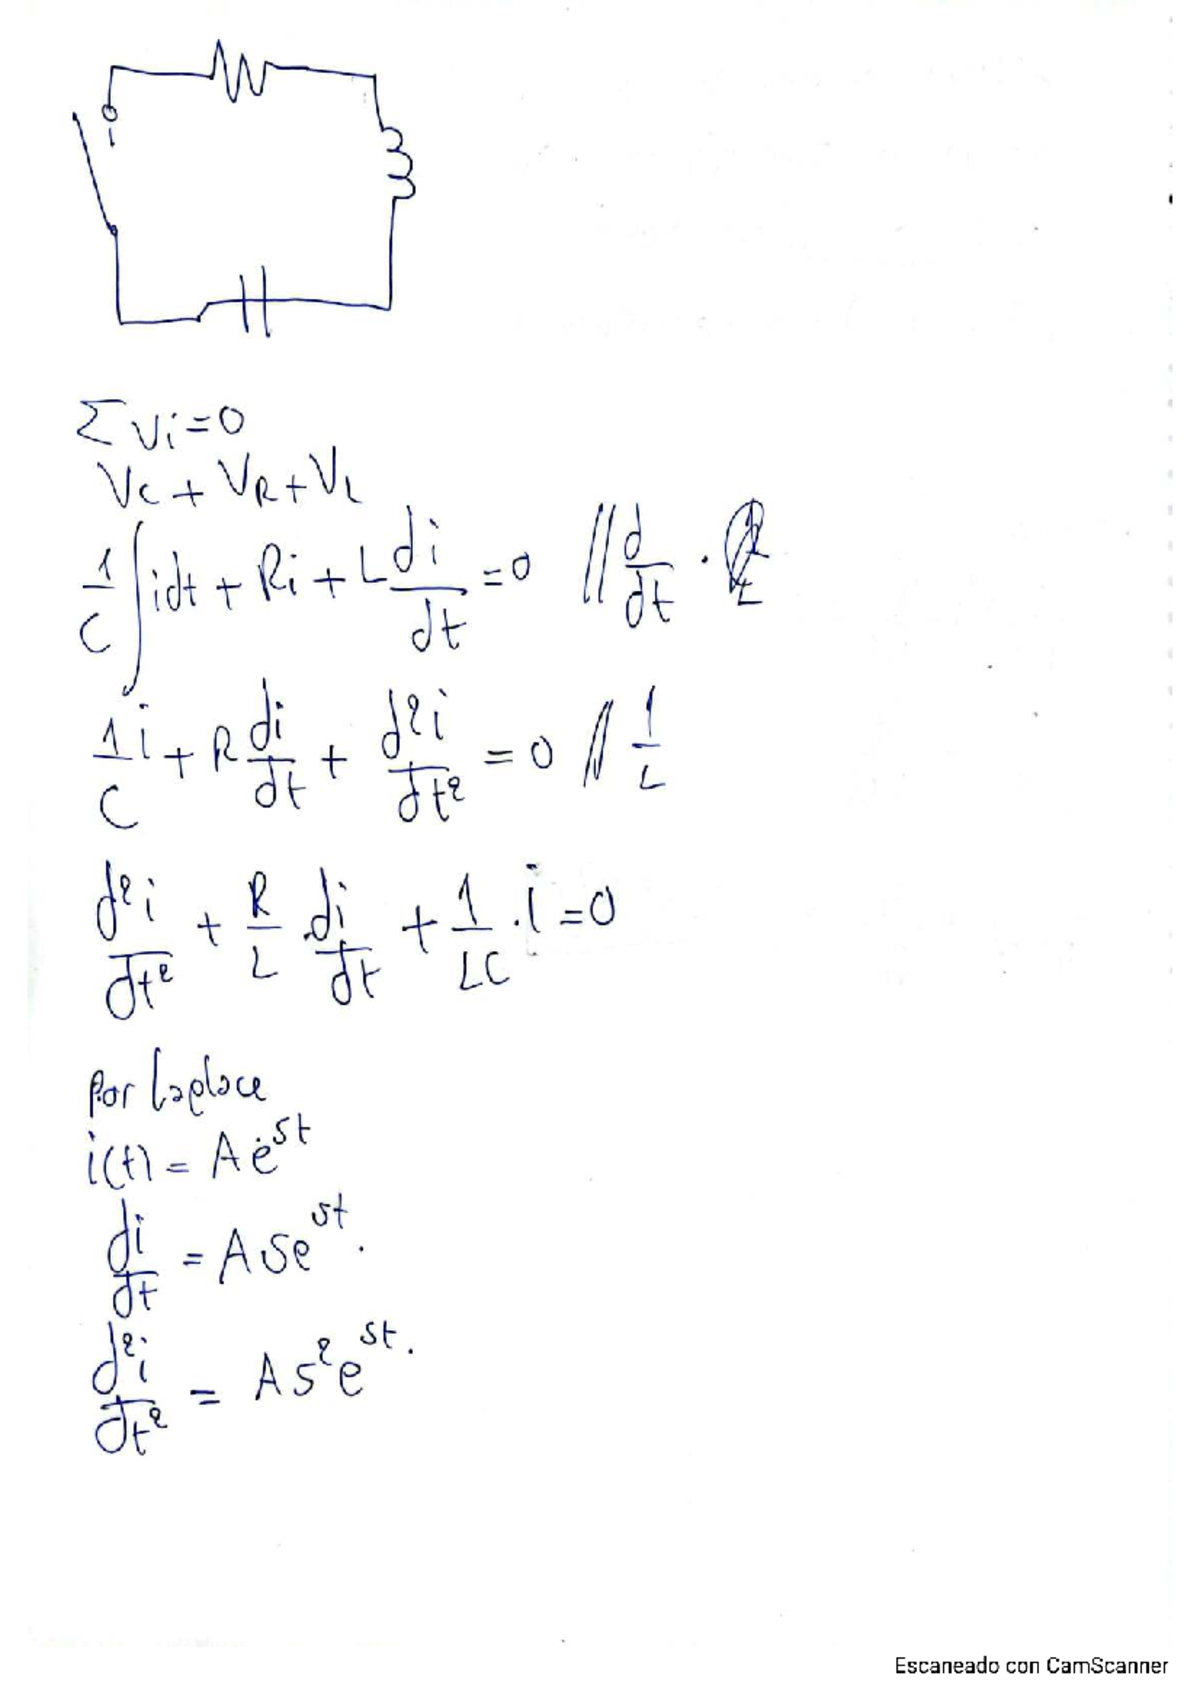 Σ Vi = 0
Vc + VR + VL
1/C ∫ i dt + Ri + L di/dt = 0 // d/dt ·
1/C i + R di/dt + d²i/dt² = 0 // 1/L
d²i/dt² + R/L · di/dt + 1/LC · i = 0
Por Laplace
i(t) = A e^st
di/dt = A s e^st.
d²i/dt² = A s² e^st.
Escaneado con CamScanner